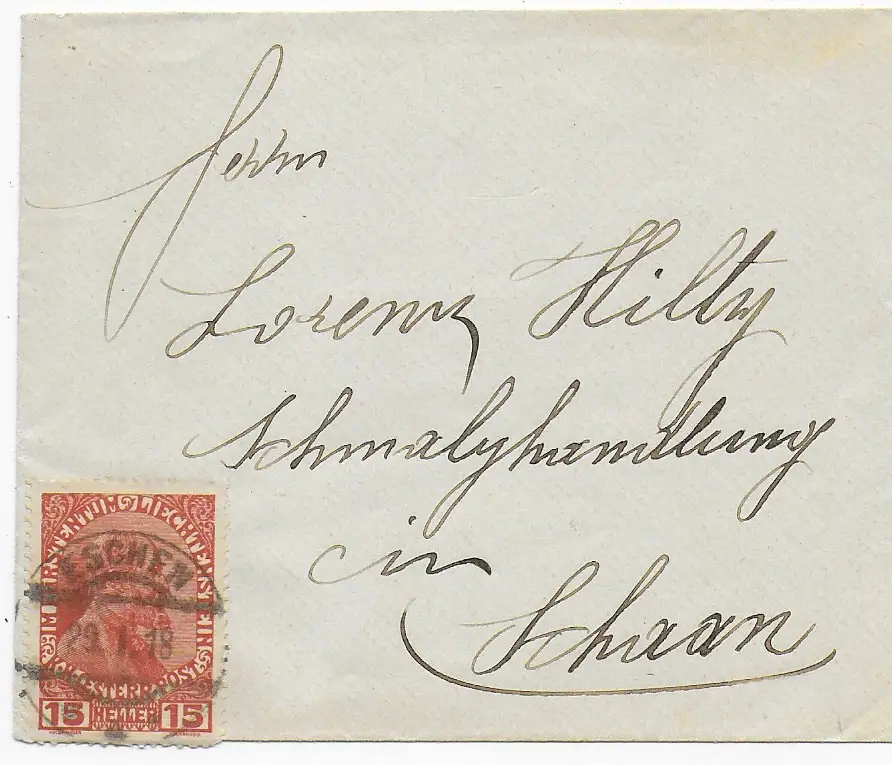 Herrn
Lorenz Hilty
Schmalzhandlung
in
Schaan
IM FÜRSTENTUM LIECHTENSTEIN
ESCHEN
29. I. 18
K.K. OESTERR. POST
15 HELLER 15